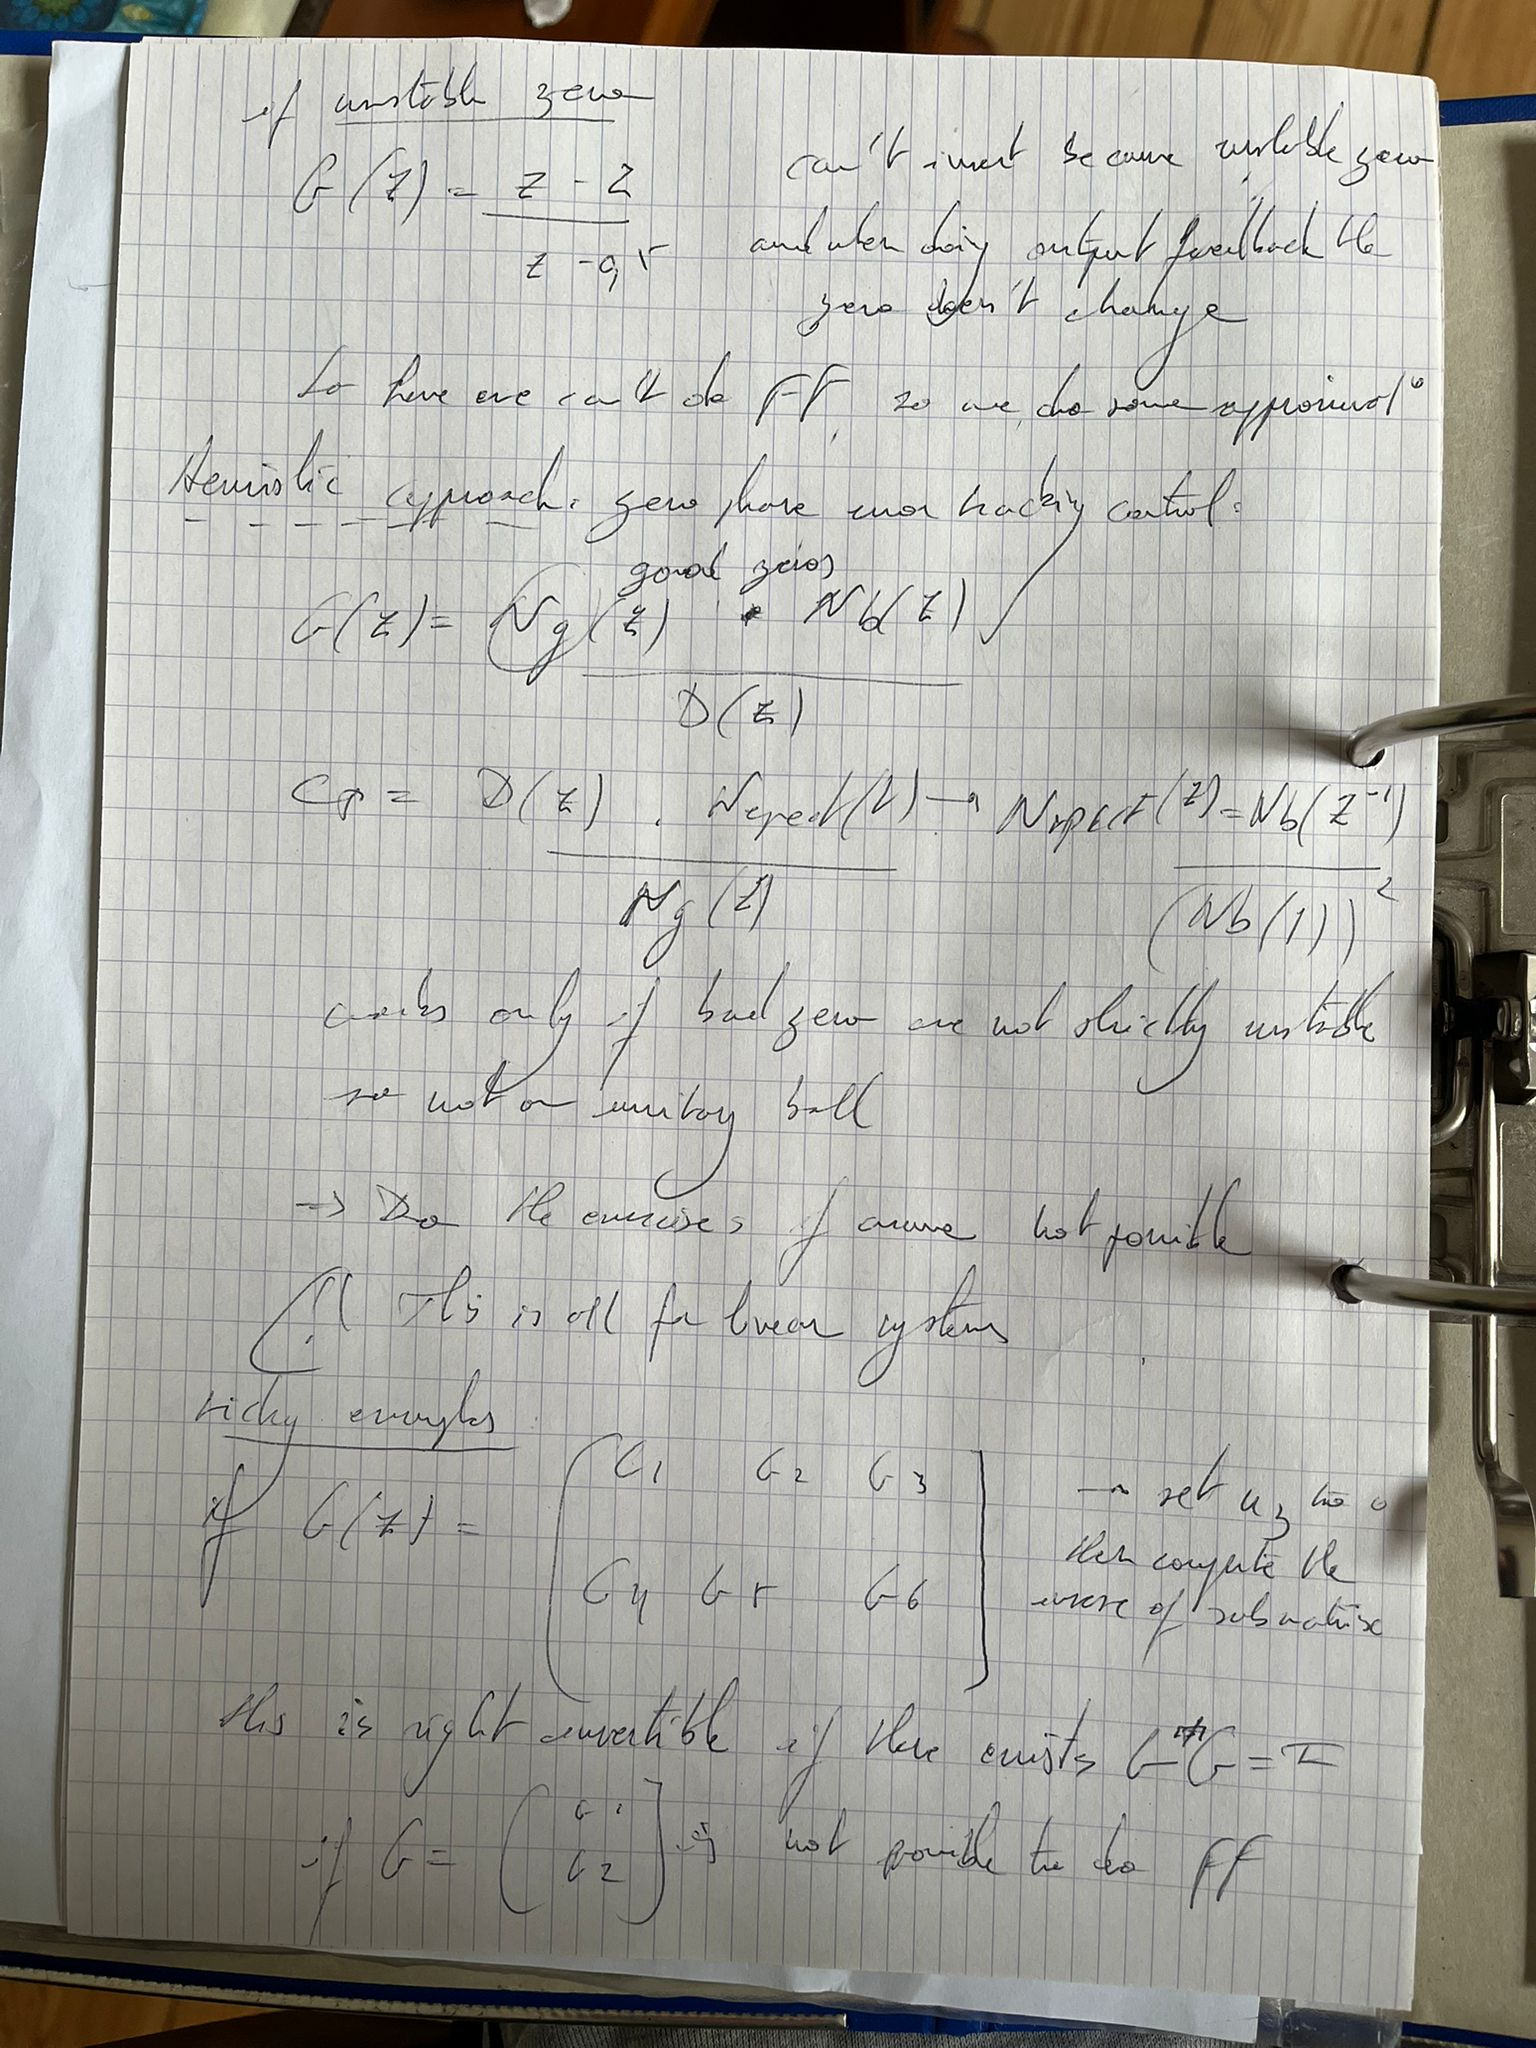 if unstable zero
G(z) = z - 2
z - 0,5
can't invert because unstable zero
and when doing output feedback the
zero doesn't change
so here we can't do FF, so we do some approximat°
Heuristic approach: zero phase error tracking control:
good zeros
G(z) = Ng(z) • Nb(z)
D(z)
CF = D(z) . Nzpect(z) → Nzpect(z) = Nb(z⁻¹)
Ng(z) (Nb(1))²
works only if bad zero are not strictly unstable
so not on unitary ball
→ Do the exercises of course not possible
! This is all for linear systems
tricky examples :
if G(z) = [ G1 G2 G3
G4 G5 G6 ]
→ set u3 to 0
then compute the
inverse of submatrix
this is right invertible if there exists G G = I
if G = [ G1
G2 ] is not possible to do FF